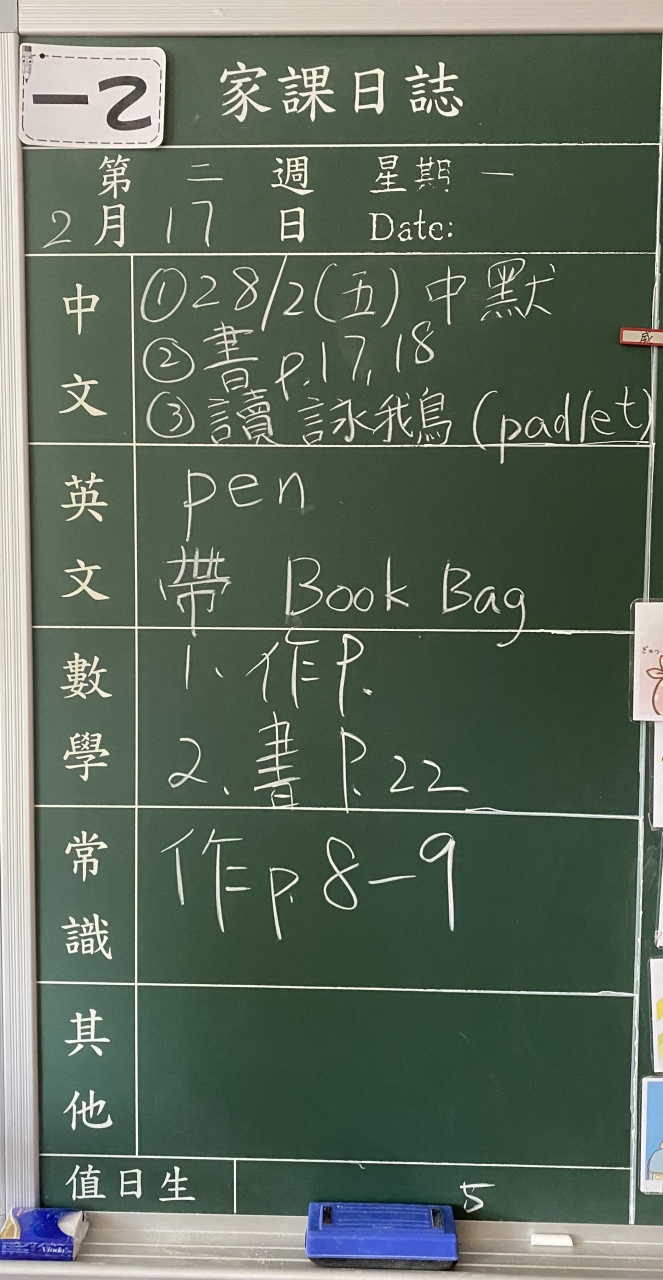 一乙
家課日誌
第二週 星期一
2月17日 Date:
中文
①28/2(五)中默
②書p.17,18
③讀 詠我鳥(padlet)
英文
pen
帶 Book Bag
數學
1、作P.
2、書P.22
常識
作p.8-9
其他
值日生 5
Vinda